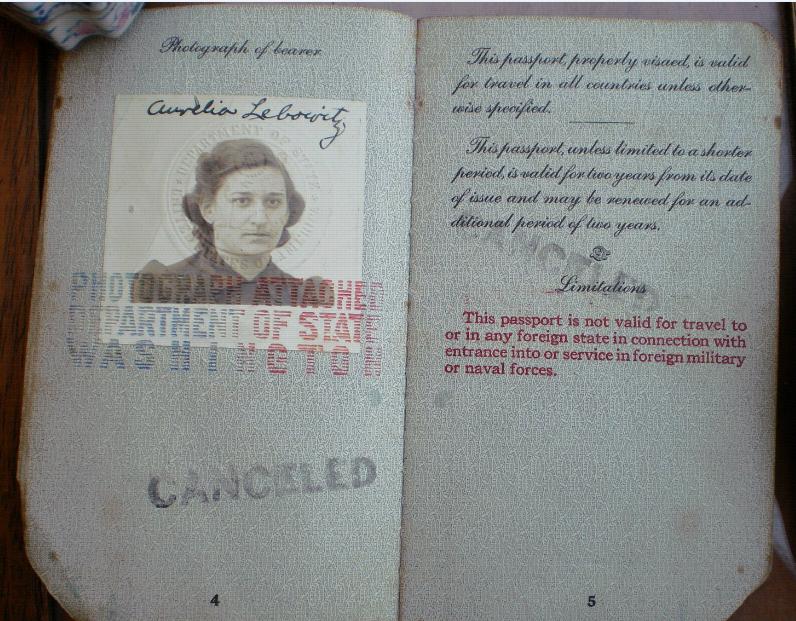 Photograph of bearer
Aurelia Lebowitz
DEPARTMENT OF STATE
PHOTOGRAPH ATTACHED
DEPARTMENT OF STATE
WASHINGTON
CANCELED
4
This passport, properly visaed, is valid
for travel in all countries unless other-
wise specified.
This passport, unless limited to a shorter
period, is valid for two years from its date
of issue and may be renewed for an ad-
ditional period of two years.
CANCELED
Limitations
This passport is not valid for travel to
or in any foreign state in connection with
entrance into or service in foreign military
or naval forces.
5